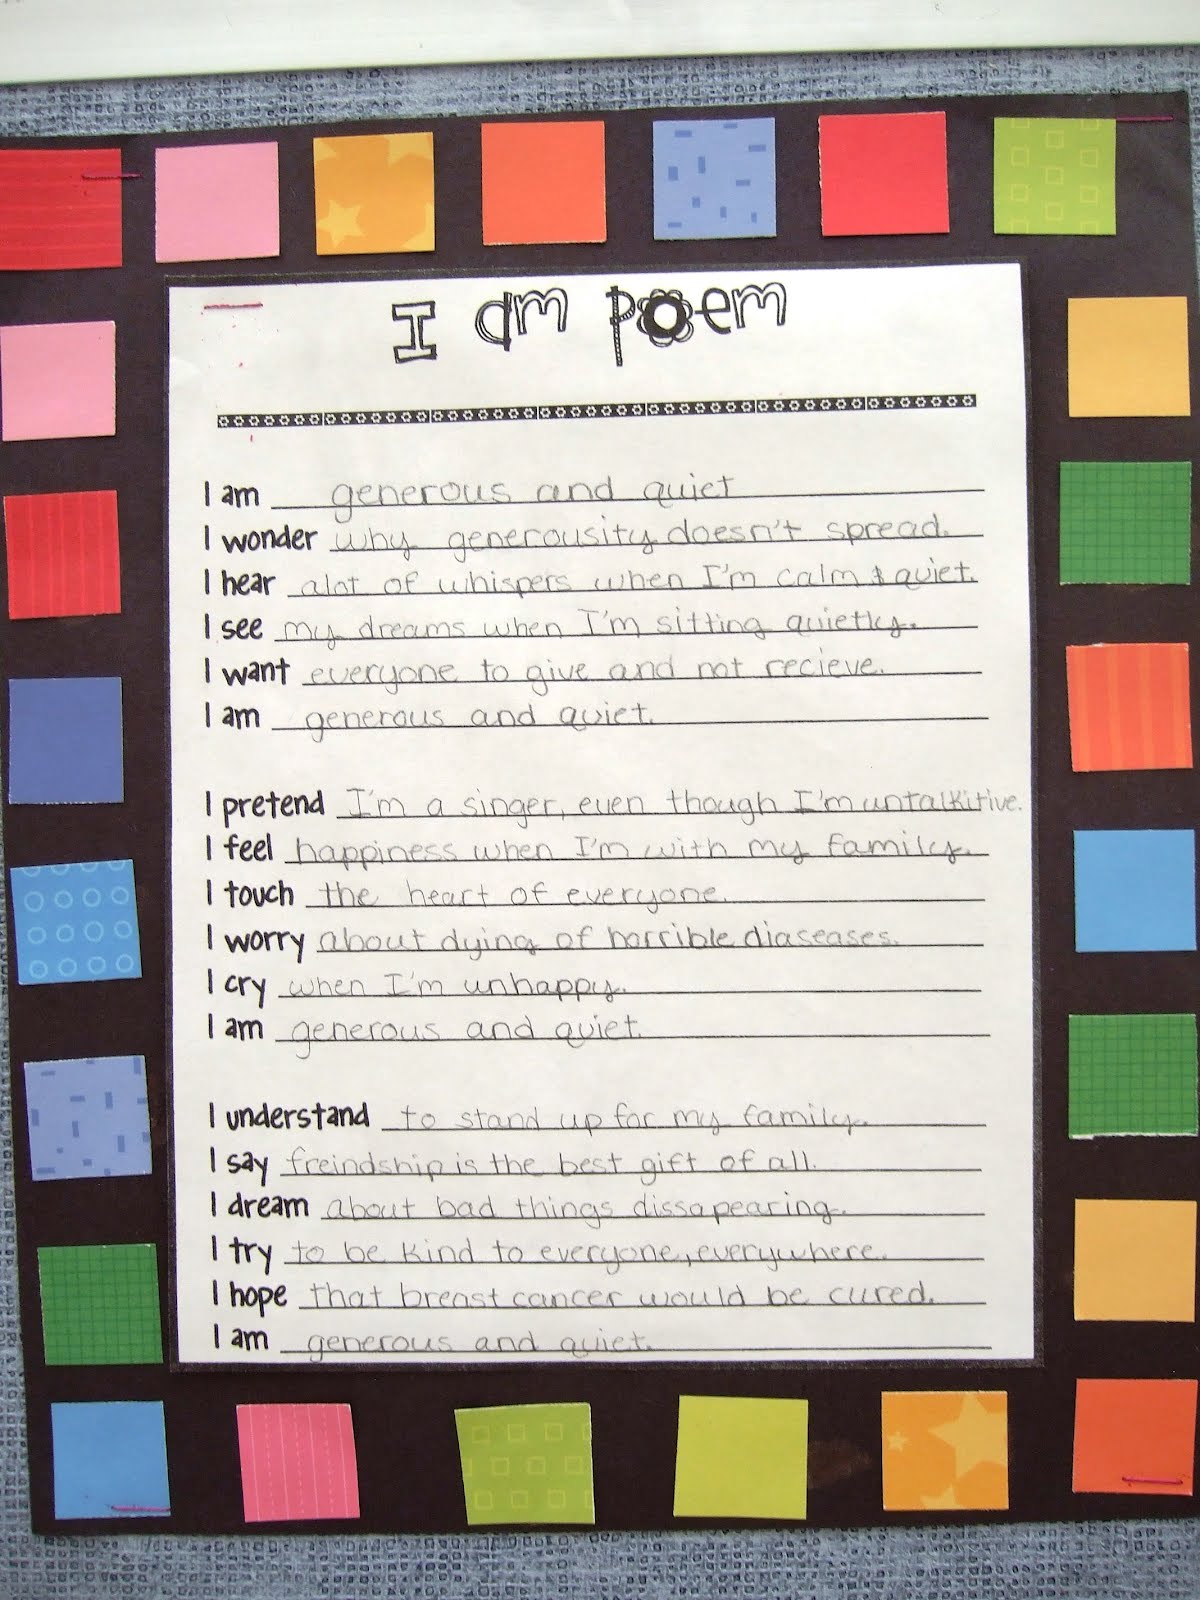 I am poem
I am generous and quiet
I wonder why generousity doesn't spread.
I hear alot of whispers when I'm calm & quiet.
I see my dreams when I'm sitting quietly.
I want everyone to give and not recieve.
I am generous and quiet.
I pretend I'm a singer, even though I'm untalkitive.
I feel happiness when I'm with my family.
I touch the heart of everyone.
I worry about dying of horrible diaseases.
I cry when I'm unhappy.
I am generous and quiet.
I understand to stand up for my family.
I say freindship is the best gift of all.
I dream about bad things dissapearing.
I try to be kind to everyone, everywhere.
I hope that breast cancer would be cured.
I am generous and quiet.